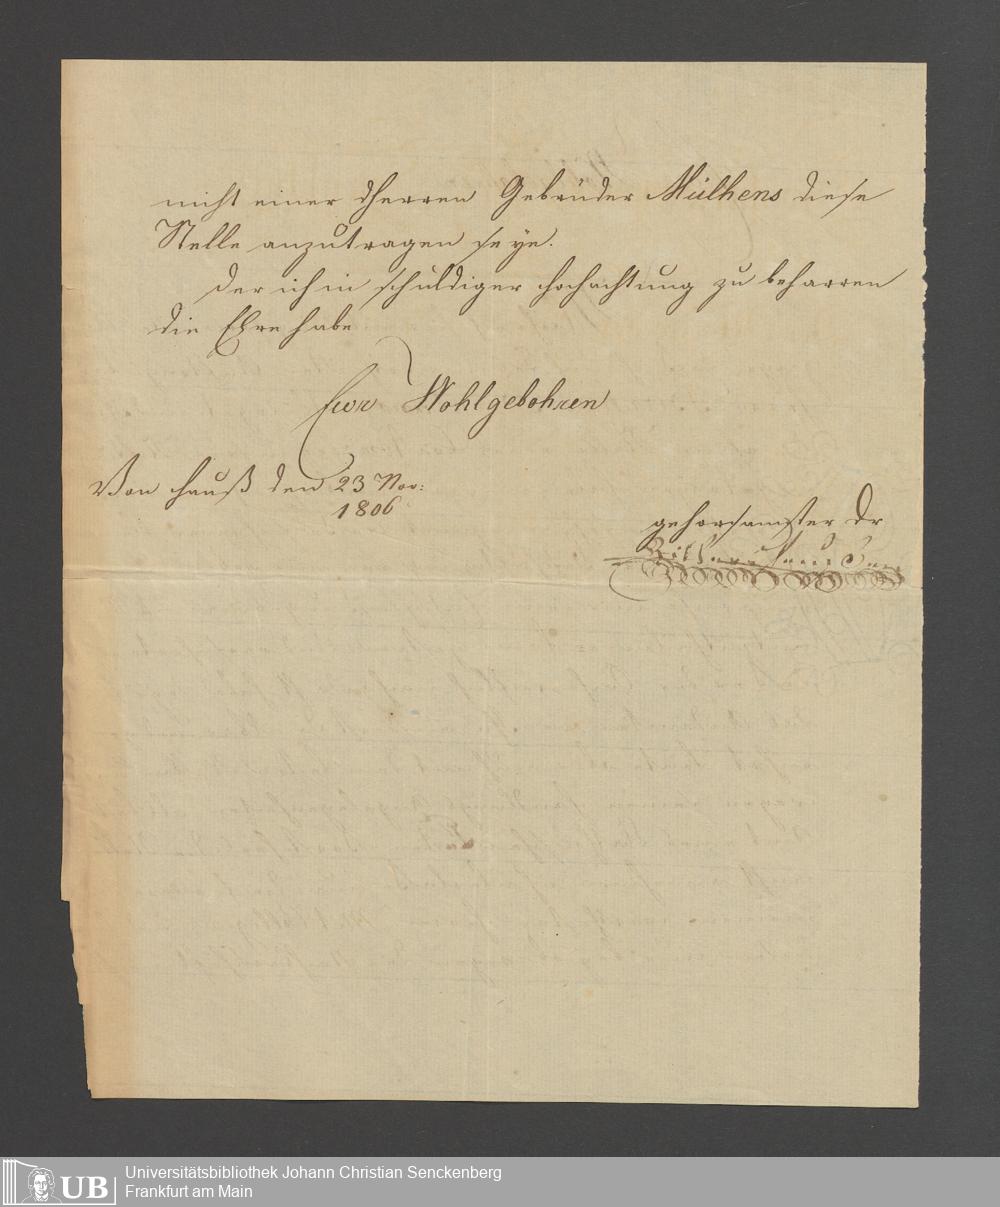 nicht einer dHerren Gebrüder Mülhens diese
Stelle anzutragen seye.
Der ich in schuldiger Hochachtung zu beharren
die Ehre habe
Euer Wohlgebohren
Von Hauß den 23 Nov:
1806
gehorsamster Dr
UB
Universitätsbibliothek Johann Christian Senckenberg
Frankfurt am Main